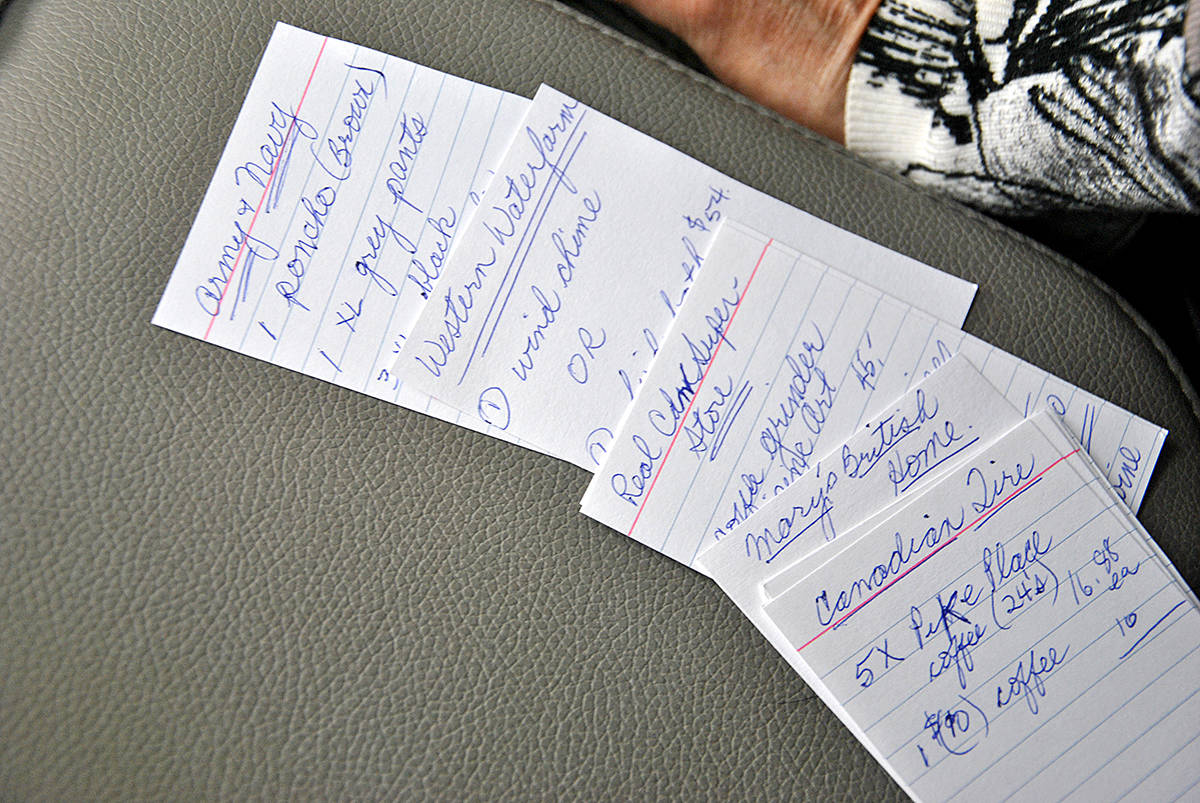 Army & Navy
1 poncho (Brown)
1 XL grey pants
black
Western Waterfarm
① wind chime
OR
$54.
Real Cdn Super
Store
coffee grinder
Art 45.
Mary's British
Home.
Canadian Tire
5X Pike Place
coffee (24s) 16.98
ea
1 $(10) coffee 10